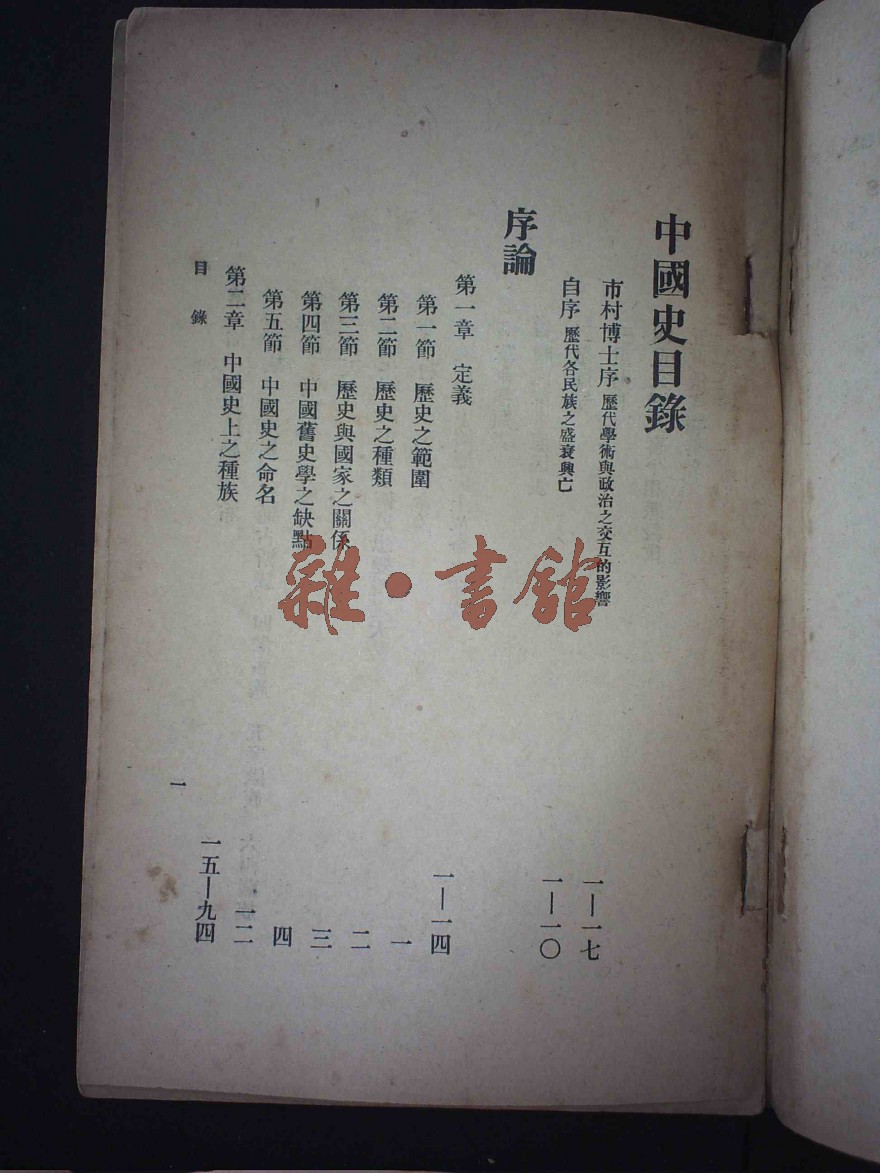 中國史目錄
市村博士序 歷代學術與政治之交互的影響 一—一七
自序 歷代各民族之盛衰興亡 一—一〇
序論
第一章 定義 一—一四
第一節 歷史之範圍 一
第二節 歷史之種類 二
第三節 歷史與國家之關係 三
第四節 中國舊史學之缺點 四
第五節 中國史之命名 一二
第二章 中國史上之種族 一五—九四
目錄 一
雜·書館